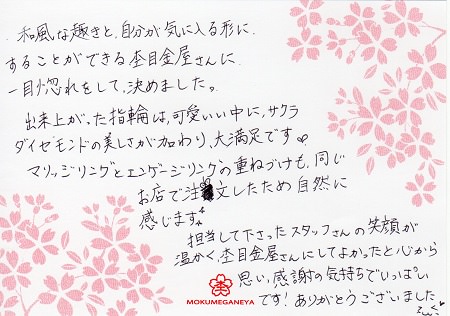 和風な趣きと、自分が気に入る形に
することができる杢目金屋さんに
一目惚れをして、決めました。
出来上がった指輪は、可愛いい中に、サクラ
ダイヤモンドの美しさが加わり、大満足です
マリッジリングとエンゲージリングの重ねづけも、同じ
お店で注文したため自然に
感じます。
担当して下さったスタッフさんの笑顔が
温かく、杢目金屋さんにしてよかったと心から
思い、感謝の気持ちでいっぱい
です!ありがとうございました
MOKUMEGANEYA